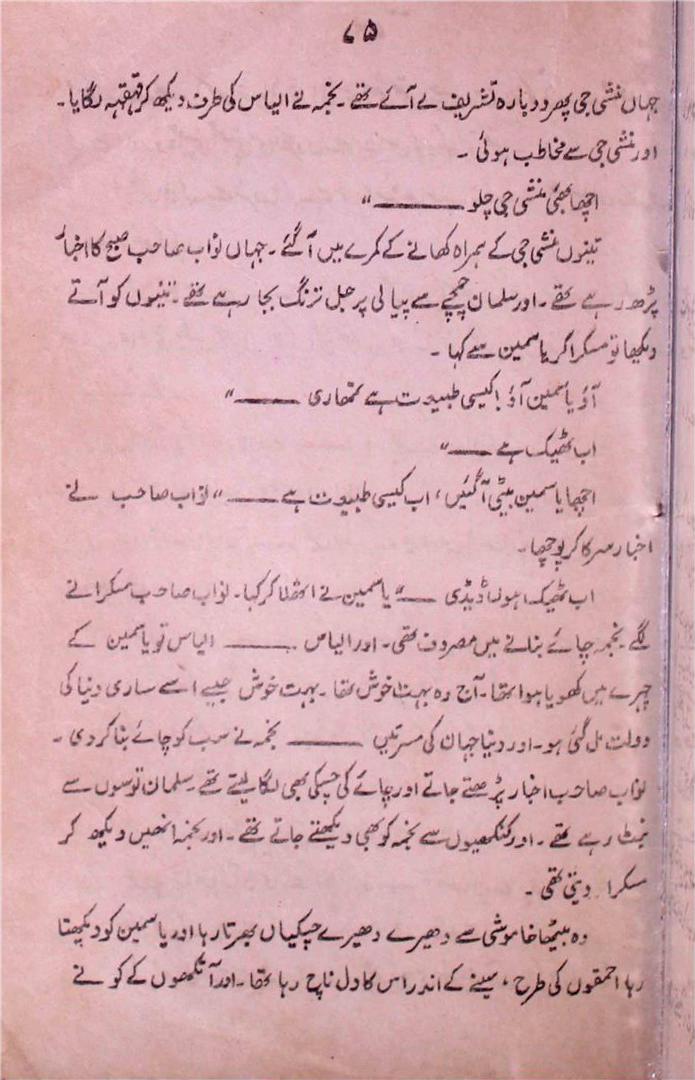 ۷۵
جہاں منشی جی پھر دوبارہ تشریف لے آئے تھے ۔ نجمہ نے الیاس کی طرف دیکھ کر قہقہہ لگایا ۔
اور منشی جی سے مخاطب ہوئی ۔
اچھا بھئی منشی جی چلو ــــــــ "
تینوں منشی جی کے ہمراہ کھانے کے کمرے میں آ گئے ۔ جہاں نواب صاحب صبح کا اخبار
پڑھ رہے تھے ۔ اور سلمان چمچے سے پیالی پر جل ترنگ بجا رہے تھے ۔ تینوں کو آتے
دیکھا تو مسکرا کر یاسمین سے کہا ۔
آؤ یاسمین آؤ ! کیسی طبیعت ہے تمھاری ــــــــ "
اب ٹھیک ہے ــــــــ "
اچھا یاسمین بیٹی آ گئیں ، اب کیسی طبیعت ہے ــــــــ " نواب صاحب نے
اخبار سرکا کر پوچھا ۔
اب ٹھیک ہوں ڈیڈی ــــــــ " یاسمین نے اٹھلا کر کہا ۔ نواب صاحب مسکرانے
لگے ۔ نجمہ چائے بنانے میں مصروف تھی ۔ اور الیاس ــــــــ الیاس تو یاسمین کے
چہرے میں کھویا ہوا تھا ۔ آج وہ بہت خوش تھا ۔ بہت خوش جیسے اسے ساری دنیا کی
دولت مل گئی ہو ۔ اور دنیا جہان کی مسرتیں ــــــــ نجمہ نے سب کو چائے بنا کر دی ۔
نواب صاحب اخبار پڑھتے جاتے اور چائے کی چسکی بھی لگا لیتے تھے ۔ سلمان توسوں سے
نبٹ رہے تھے ۔ اور کنکھیوں سے نجمہ کو بھی دیکھتے جاتے تھے ۔ اور نجمہ انھیں دیکھ کر
مسکرا دیتی تھی ۔
وہ بیٹھا خاموشی سے دھیرے دھیرے چسکیاں بھرتا رہا اور یاسمین کو دیکھتا
رہا احمقوں کی طرح ، سینے کے اندر اس کا دل ناچ رہا تھا ۔ اور آنکھوں کے کونے